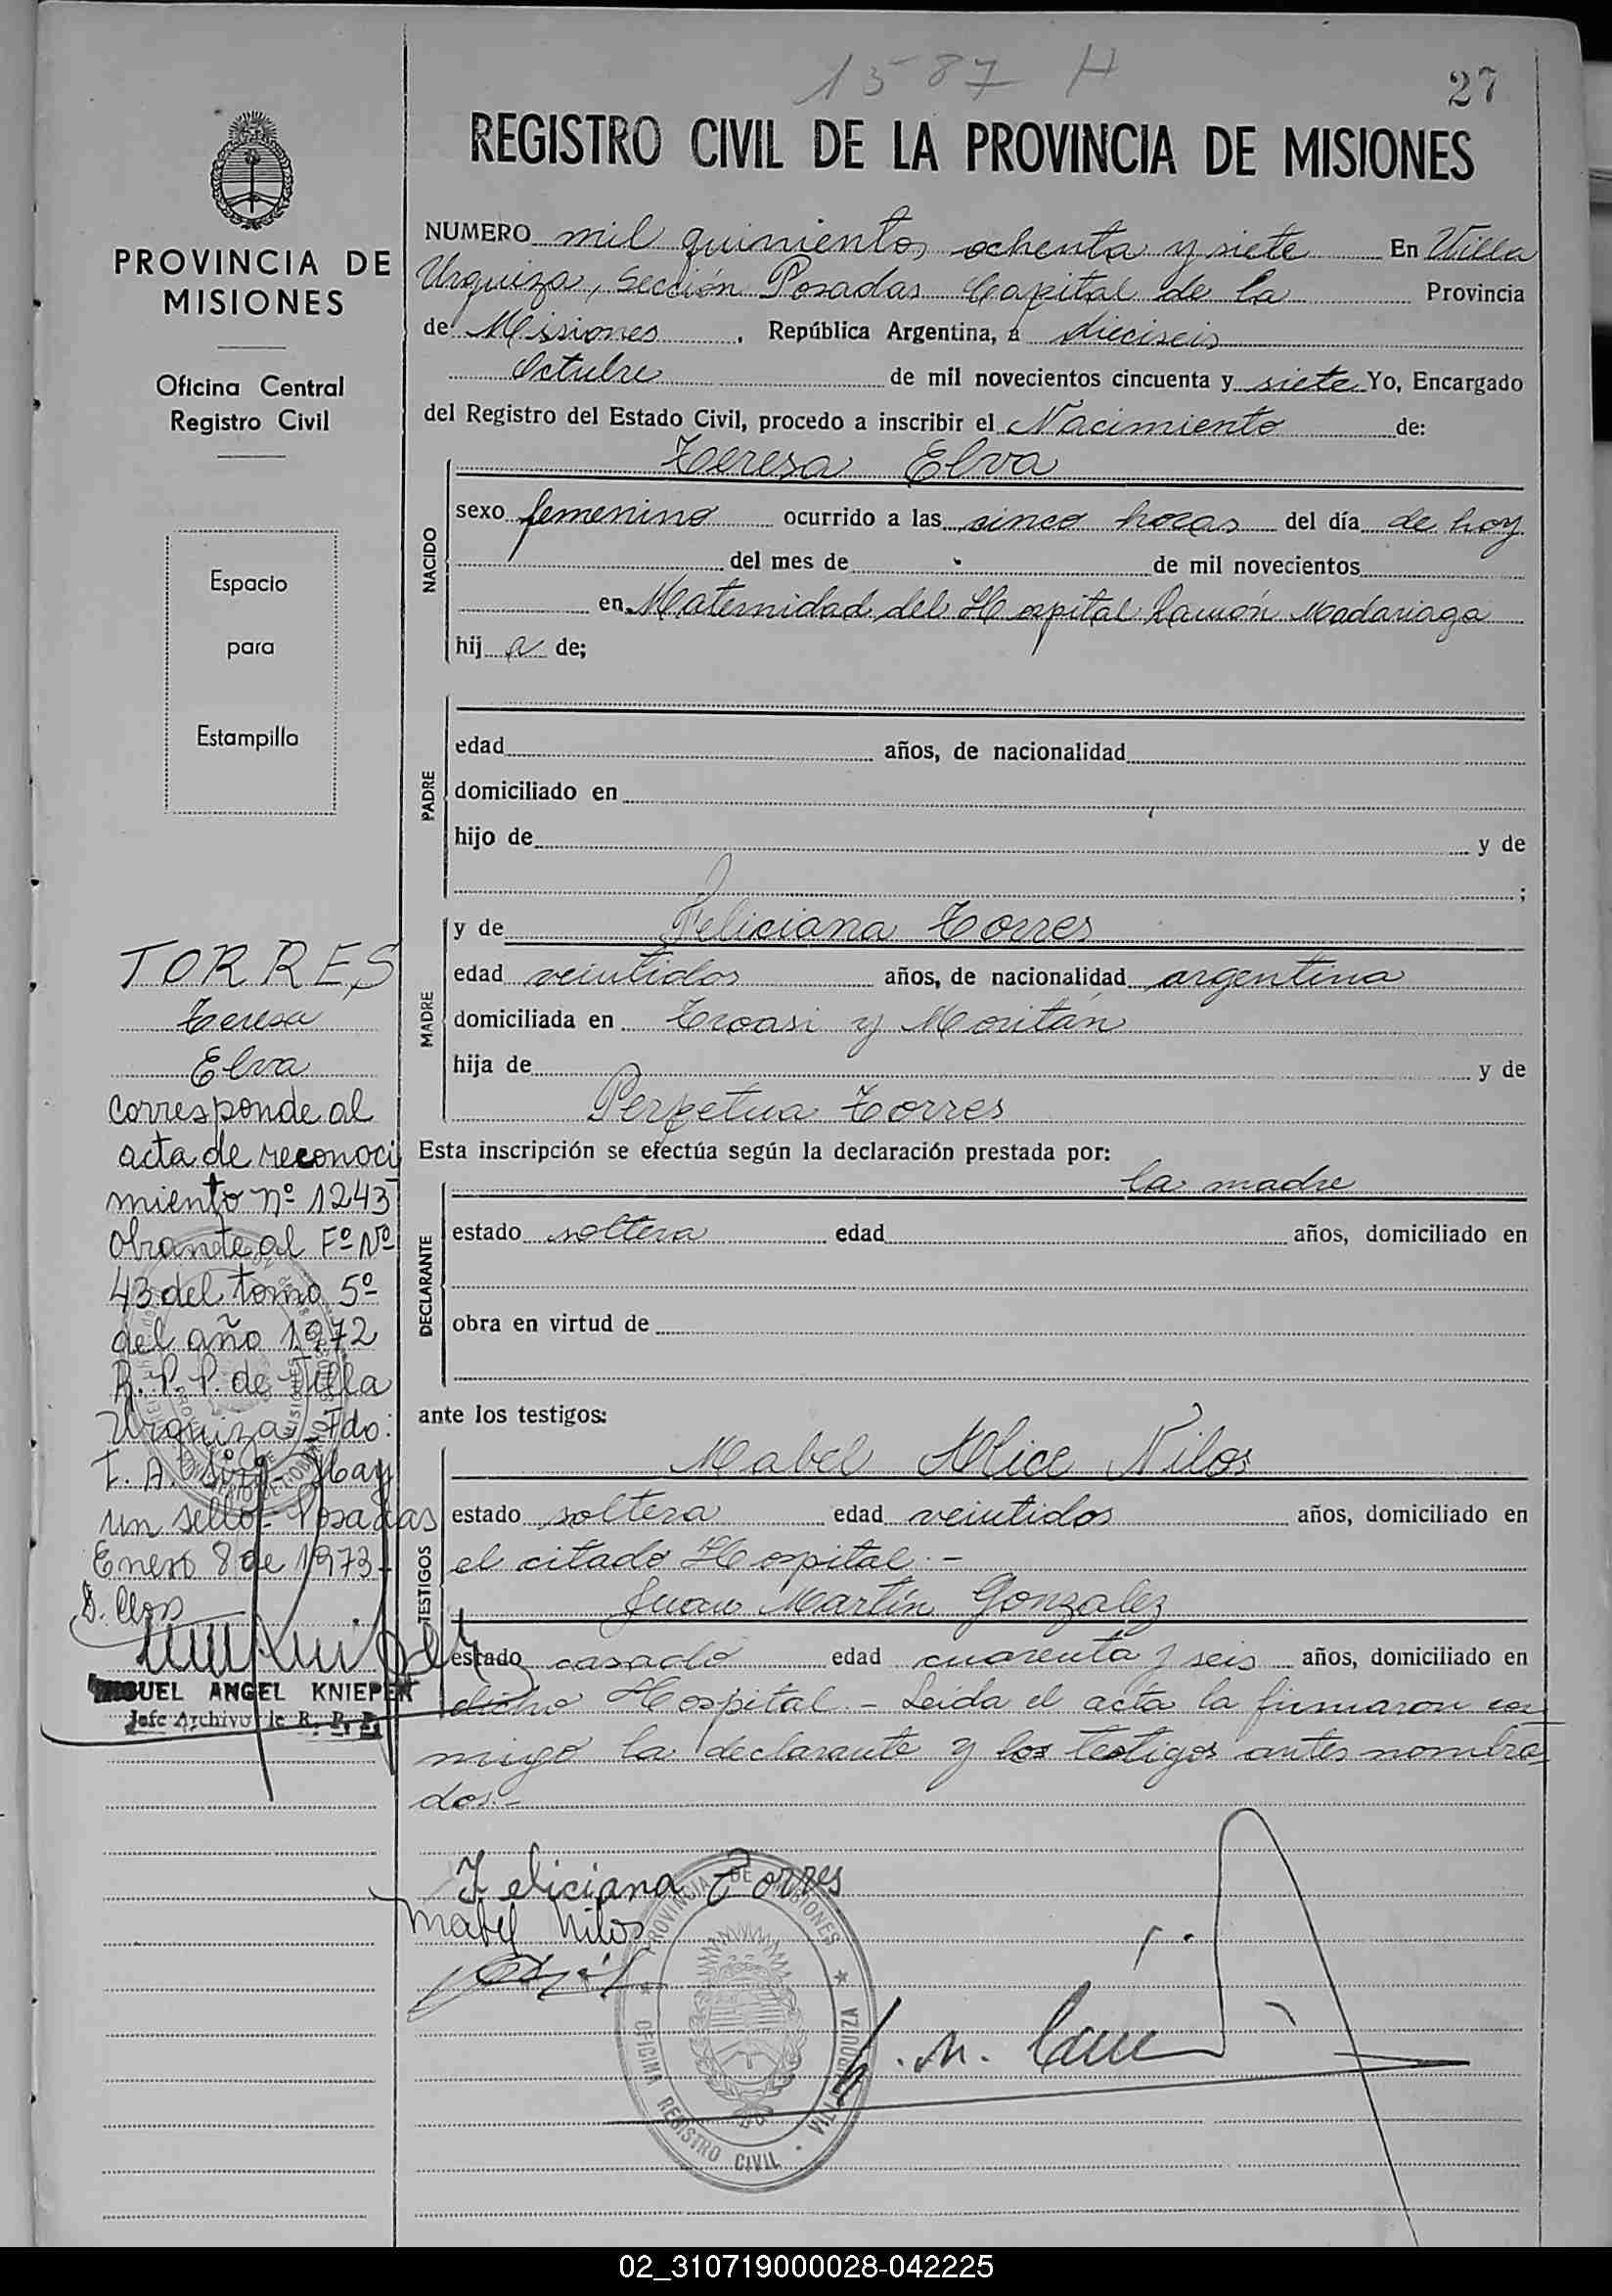 1587 H
27
REGISTRO CIVIL DE LA PROVINCIA DE MISIONES
PROVINCIA DE
MISIONES
Oficina Central
Registro Civil
Espacio
para
Estampilla
NUMERO mil quinientos ochenta y siete En Villa
Urquiza, Sección Posadas Capital de la Provincia
de Misiones, República Argentina, a dieciseis
Octubre de mil novecientos cincuenta y siete Yo, Encargado
del Registro del Estado Civil, procedo a inscribir el Nacimiento de:
NACIDO
Teresa Elva
sexo femenino ocurrido a las cinco horas del día de hoy
del mes de de mil novecientos
en Maternidad del Hospital Ramón Madariaga
hij a de;
PADRE
edad años, de nacionalidad
domiciliado en
hijo de y de
;
MADRE
y de Feliciana Torres
edad veintidos años, de nacionalidad argentina
domiciliada en y
hija de y de
Perpetua Torres
Esta inscripción se efectúa según la declaración prestada por:
DECLARANTE
la madre
estado soltera edad años, domiciliado en
obra en virtud de
ante los testigos:
TESTIGOS
Mabel Alice Nilos
estado soltera edad veintidos años, domiciliado en
el citado Hospital.-
Juan Martín Gonzalez
estado casado edad cuarenta y seis años, domiciliado en
dicho Hospital.- Leida el acta la firmaron con
migo la declarante y los testigos antes nombra
dos.-
TORRES
Teresa
Elva
Corresponde al
acta de reconoci
miento nº 1243
Obrante al Fº Nº
43 del tomo 5º
del año 1972
R. P. P. de Villa
Urquiza Fdo:
T. A. Hay
un sello- Posadas
Enero 8 de 1973-
MIGUEL ANGEL KNIEPER
Jefe Archivo de R. P. P.
Feliciana Torres
Mabel Nilos
PROVINCIA DE MISIONES
OFICINA REGISTRO CIVIL · VILLA URQUIZA
02_310719000028-042225